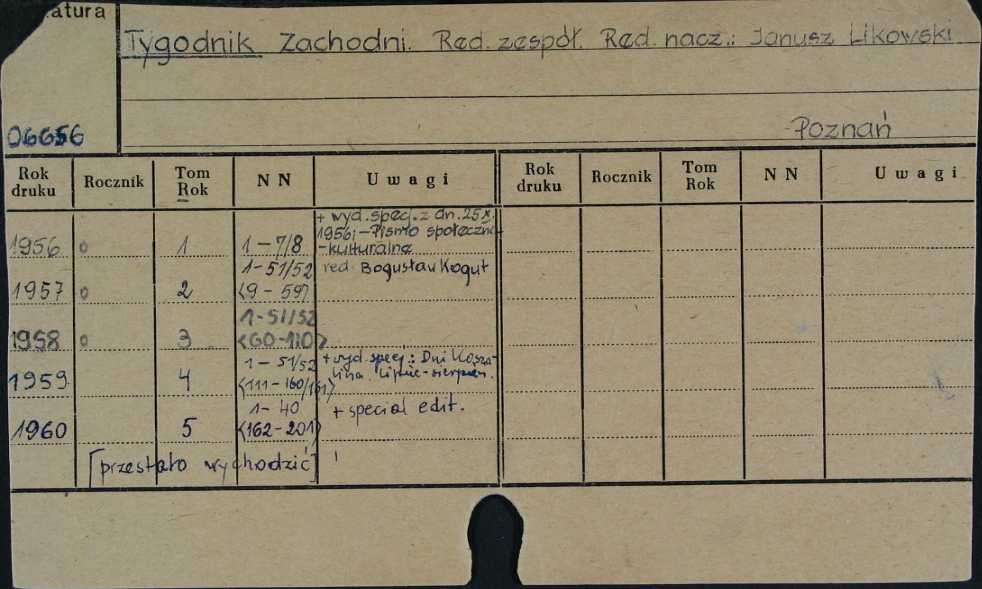 atura
Tygodnik Zachodni. Red. zespół. Red. nacz.: Janusz Likowski
06656
Poznań
Rok druku Rocznik Tom Rok NN Uwagi Rok druku Rocznik Tom Rok NN Uwagi
+ wyd. spec. z dn. 25 X.
1956; - Pismo społeczno-
1956 0 1 1-7/8 -kulturalne
1-51/52 red. Bogusław Kogut
1957 0 2 <9-59>
1-51/52
1958 0 3 <60-110>
1-51/52 + wyd. spec.: Dni Kosza-
1959 4 <111-160/161> lina. lipiec-sierpień.
1-40 + special edit.
1960 5 <162-201>
[przestało wychodzić]